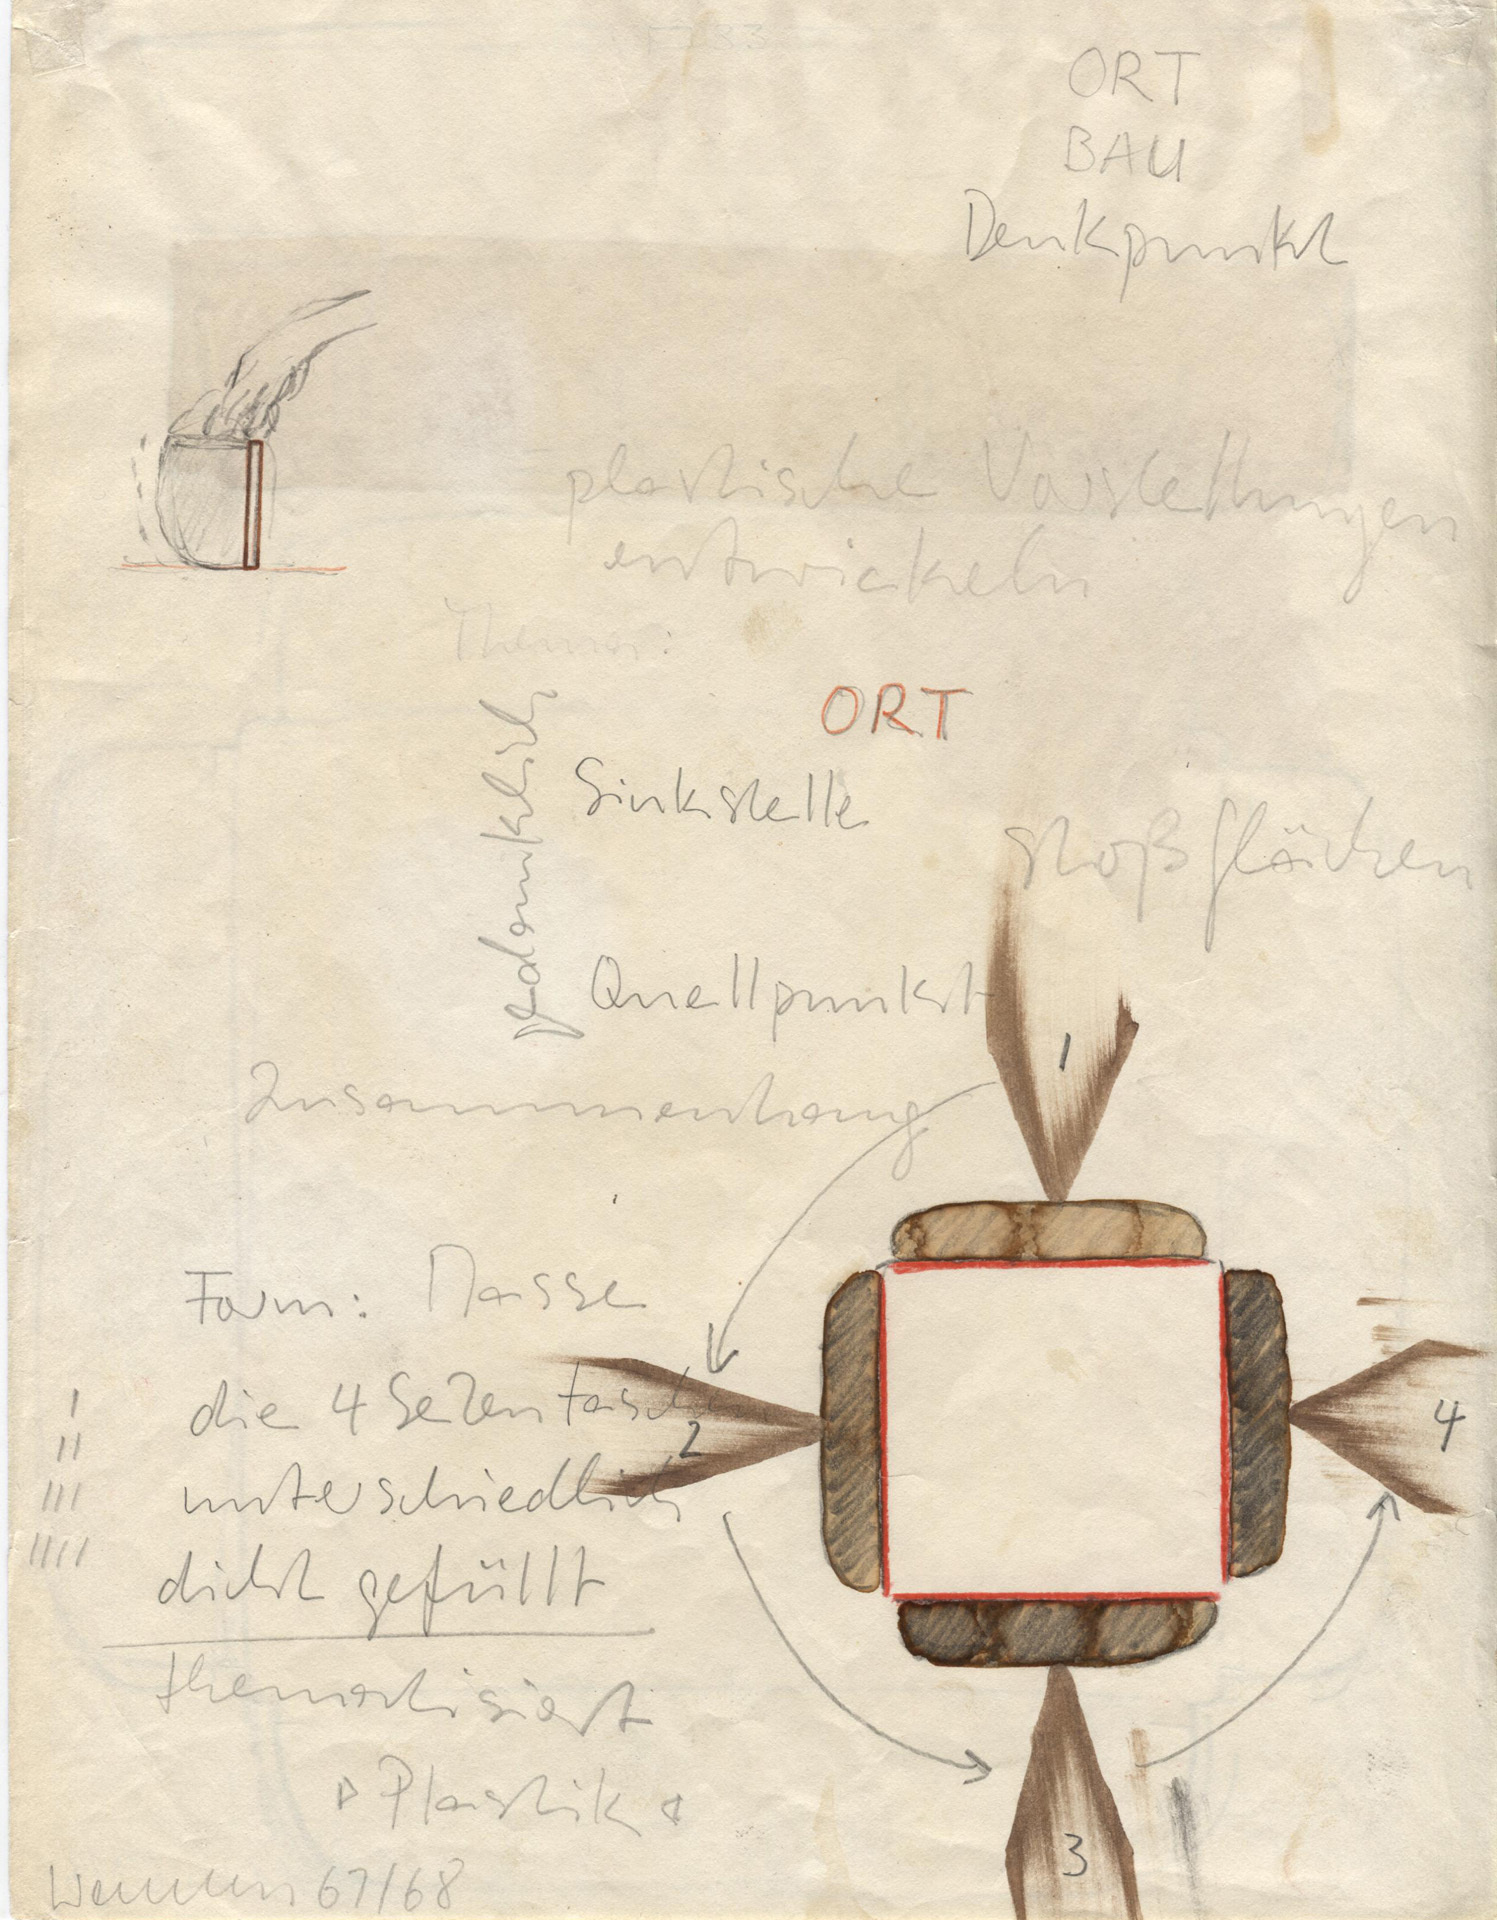 ORT
BAU
Denkpunkt
plastische Vorstellungen
entwickeln
Thema:
ORT
Sinkstelle
Stoßflächen
Quellpunkt
Zusammenhang
1
Form: Masse
I
die 4 Seitentaschen
II
2
4
unterschiedlich
III
IIII
dicht gefüllt
thematisiert
Plastik
3
67/68